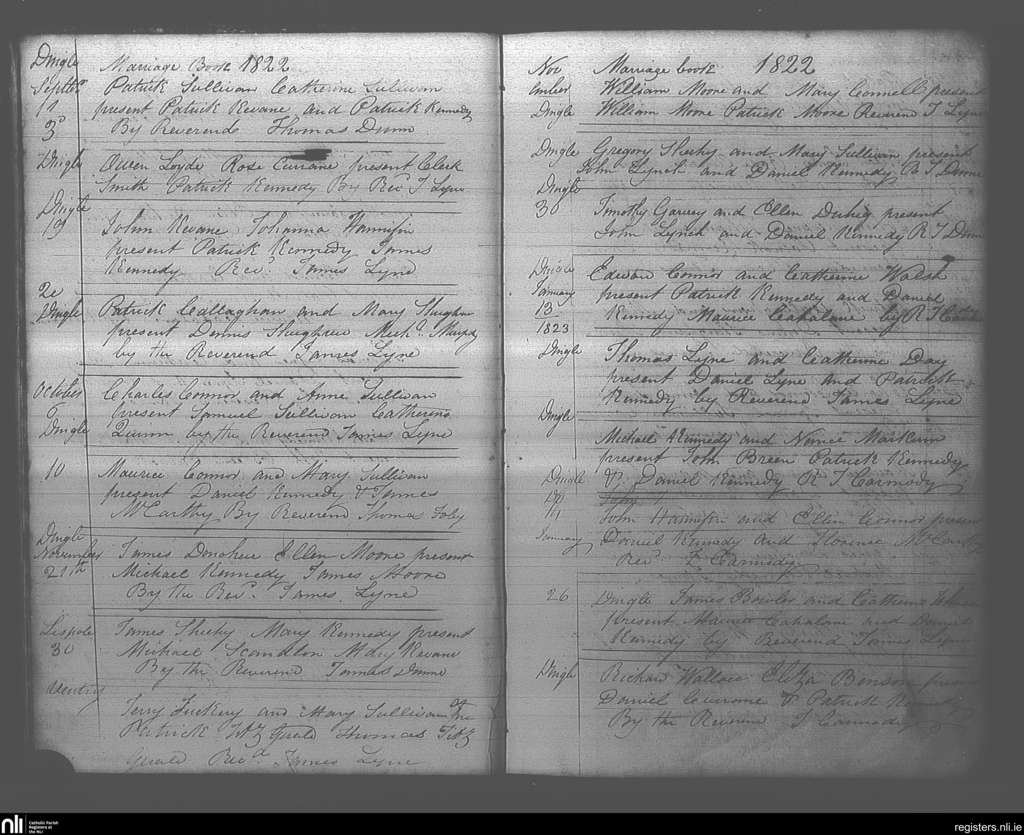 Dingle Marriage Book 1822
Septbr Patrick Sullivan Catherine Sullivan
present Patrick Kevane and Patrick Kennedy
3d By Reverend Thomas Dunn
Dingle Owen Loyde Rose Currane present Clerk
Smith Patrick Kennedy By Rev J Lyne
Dingle
19 John Kevane Johanna Hannifin
present Patrick Kennedy James
Kennedy Revd. James Lyne
Dingle Patrick Callaghan and Mary Shughrue
present Dennis Shughrue Michl. Murphy
by the Reverend James Lyne
October Charles Connor and Anne Sullivan
6 present Samuel Sullivan Catherine
Dingle Quinn by the Reverend James Lyne
10 Maurice Connor and Mary Sullivan
present Daniel Kennedy & James
McCarthy By Reverend Thomas Foley
Dingle
November James Donohue Ellen Moore present
21th Michael Kennedy James Moore
By the Revd. James Lyne
Lispole James Sheehy Mary Kennedy present
30 Michael Scanllon Mary Kevane
By the Reverend James Dunne
Ventry
Terry and Mary Sullivan
Patrick Fitz Gerald Thomas Fitz
Gerald Revd James Lyne
Nov Marriage book 1822
ember William Moore and Mary Connell present
Dingle William Moore Patrick Moore Reverend J Lyne
Dingle Gregory Sheehy and Mary Sullivan present
John Lynch and Daniel Kennedy R J Dunne
Dingle
30 Timothy Garvey and Ellen Duhig present
John Lynch and Daniel Kennedy R J Dunn
Dingle Edward Connor and Catherine Walsh
January present Patrick Kennedy and Daniel
13 Kennedy Maurice Cahalane by R J
1823
Dingle Thomas Lyne and Catherine Day
present Daniel Lyne and Patrick
Kennedy by Reverend James Lyne
Dingle
Michael Kennedy and Nance Markum
present John Breen Patrick Kennedy
Dingle & Daniel Kennedy R J Carmody
John Hannifin and Ellen Connor present
January Daniel Kennedy and Florence McCarthy
Rev J Carmody
26 Dingle James Bowler and Catherine
present Maurice Cahalane and Daniel
Kennedy by Reverend James Lyne
Dingle Richard Wallace Eliza Benson present
Daniel Currane & Patrick Kennedy
By the Reverend J Carmody
nli Catholic Parish
Registers at
the NLI
registers.nli.ie